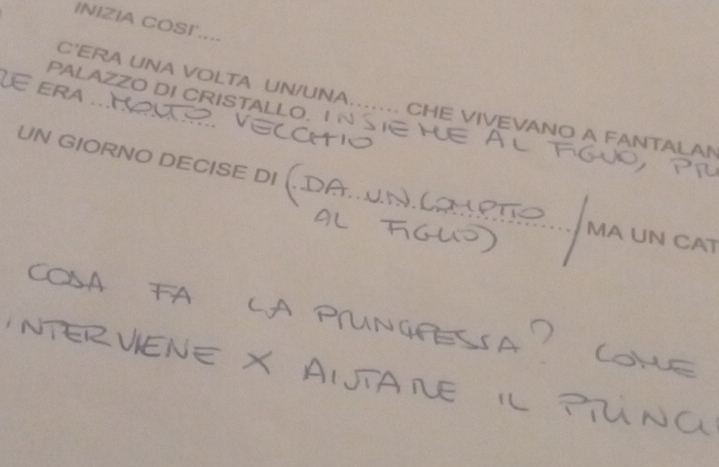 INIZIA COSI'....
C'ERA UNA VOLTA UN/UNA....... CHE VIVEVANO A FANTALAN
PALAZZO DI CRISTALLO. INSIEME AL FIGLIO,
ERA ... MOLTO VECCHIO
UN GIORNO DECISE DI (DA UN COMPITO / MA UN CAT
AL FIGLIO)
COSA FA LA PRINCIPESSA? COME
INTERVIENE X AIUTARE IL PRINCI